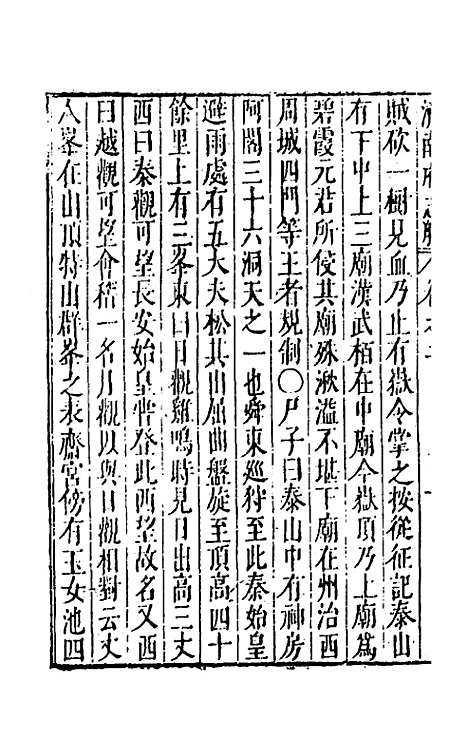 賊砍一樹見血乃止有嶽令掌之按從征記泰山
有下中上三廟漢武栢在中廟今嶽頂乃上廟爲
碧霞元君所侵其廟殊湫溢不堪下廟在州治西
周城四門等王者規制〇尸子曰泰山中有神房
阿閣三十六洞天之一也舜東巡狩至此秦始皇
避雨處有五大夫松其山屈曲盤旋至頂高四十
餘里上有三峯東曰日觀雞鳴時見日出高三丈
西曰秦觀可望長安始皇嘗登此西望故名又西
曰越觀可望會稽一名月觀以與日觀相對云丈
人峯在山頂特山群峯之表齋宮傍有玉女池四